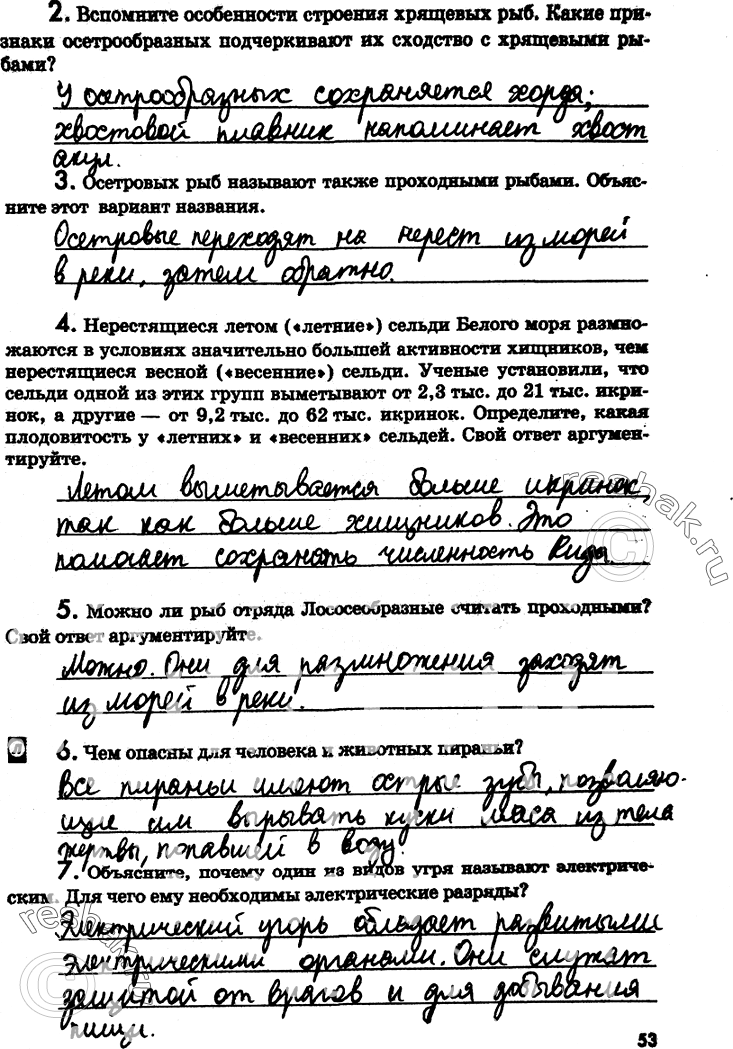 2. Вспомните особенности строения хрящевых рыб. Какие при-
знаки осетрообразных подчеркивают их сходство с хрящевыми ры-
бами?
У осетрообразных сохраняется хорда;
хвостовой плавник напоминает хвост
акул.
3. Осетровых рыб называют также проходными рыбами. Объяс-
ните этот вариант названия.
Осетровые переходят на нерест из морей
в реки, затем обратно.
4. Нерестящиеся летом («летние») сельди Белого моря размно-
жаются в условиях значительно большей активности хищников, чем
нерестящиеся весной («весенние») сельди. Ученые установили, что
сельди одной из этих групп выметывают от 2,3 тыс. до 21 тыс. икри-
нок, а другие — от 9,2 тыс. до 62 тыс. икринок. Определите, какая
плодовитость у «летних» и «весенних» сельдей. Свой ответ аргумен-
тируйте.
Летом выметывается больше икринок,
так как больше хищников. Это
помогает сохранять численность вида.
5. Можно ли рыб отряда Лососеобразные считать проходными?
Свой ответ аргументируйте.
Можно. Они для размножения заходят
из морей в реки.
л 6. Чем опасны для человека и животных пираньи?
Все пираньи имеют острые зубы, позволяю-
щие им вырывать куски мяса из тела
жертвы, попавшей в воду.
7. Объясните, почему один из видов угря называют электриче-
ским. Для чего ему необходимы электрические разряды?
Электрический угорь обладает развитыми
электрическими органами. Они служат
защитой от врагов и для добывания
пищи.
53
reshak.ru
reshak.ru